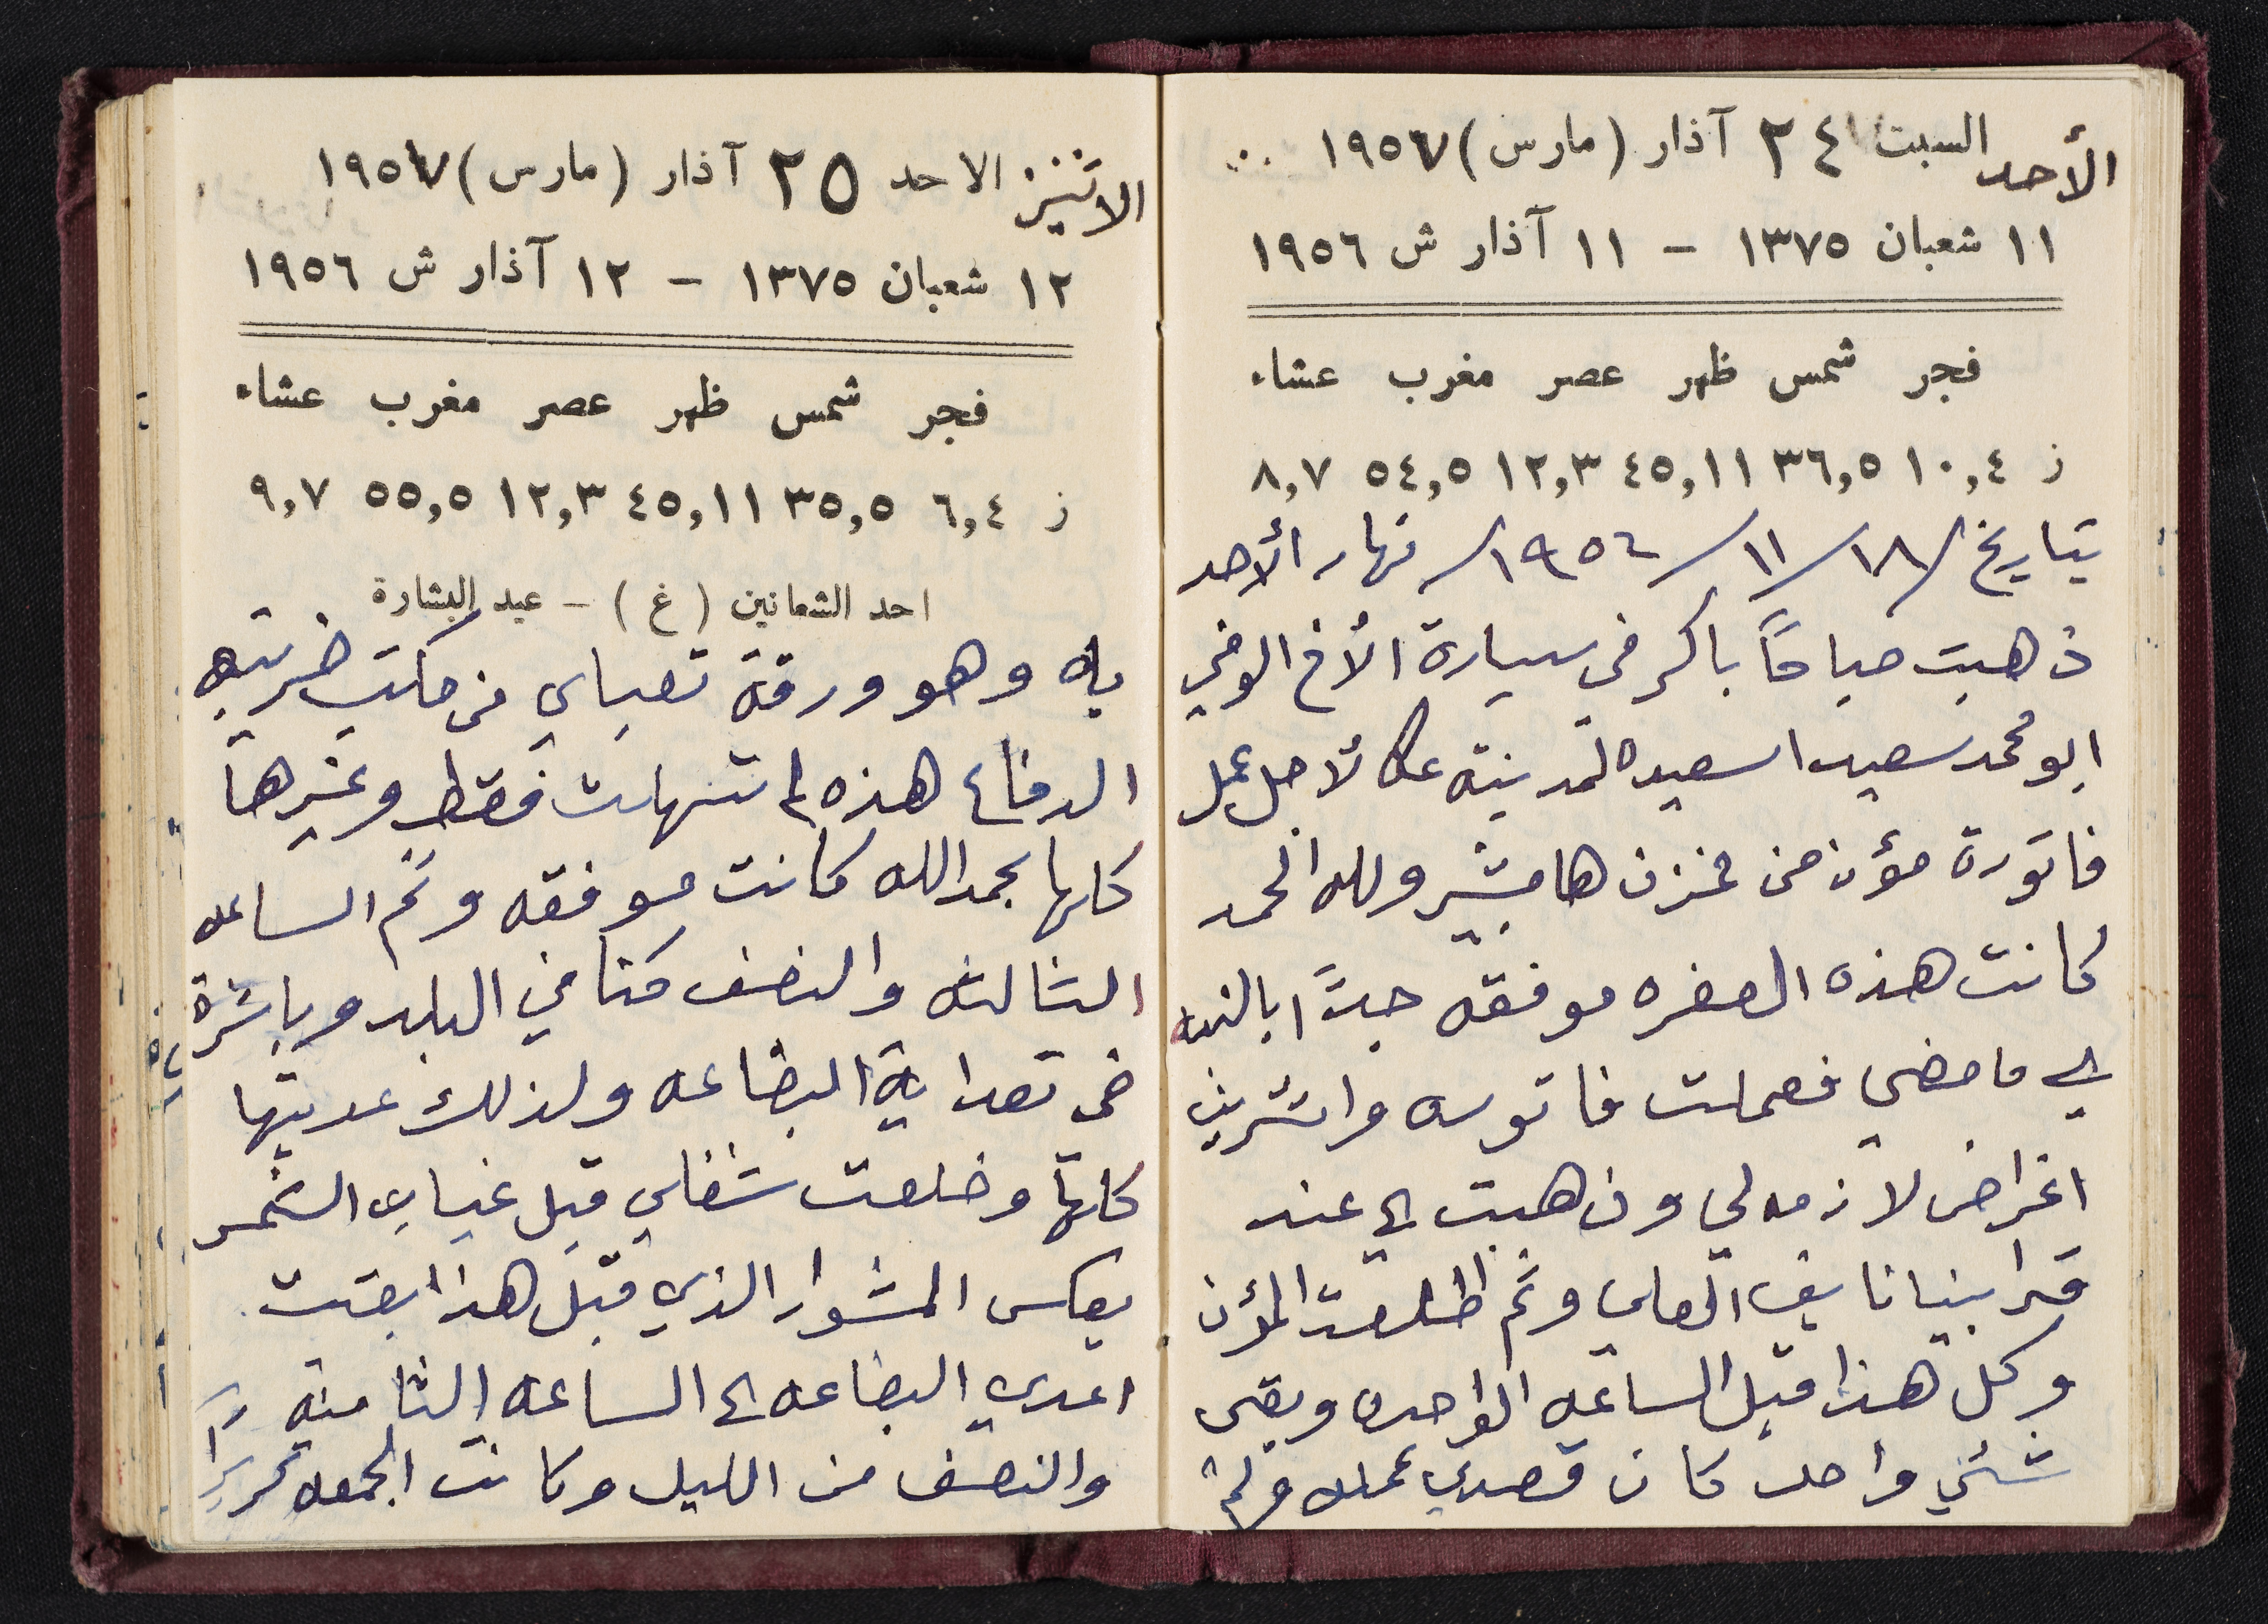 الأحد السبت ٢٤ آذار (مارس) ١٩٥٧
١١ شعبان ١٣٧٥ – ١١ آذار ش ١٩٥٦
فجر شمس ظهر عصر مغرب عشاء
ز ١٠,٤ ٣٦,٥ ٤٥,١١ ١٢,٣ ٥٤,٥ ٨,٧
بتاريخ /١٨/١١/١٩٥٦/ نهار الأحد
ذهبت صباحاً باكر في سيارة الأخ الوفي
ابو محمد سعيد اسعيد لمدينة عكا لأجل عمل
فاتورة مؤن من مخزن هامشبير ولله الحمد
كانت هذه السفره موفقه جداً بالنسبه
الى ما مضى فعملت فاتوره واشتريت
اغراض لازمه لي وذهبت الى عند
نايف العلي وثم اطلعت المؤن
وكل هذا قبل الساعه الواحده وبقى
شئي واحد كان قصدي عمله ولم
الاثنين الاحد ٢٥ آذار (مارس) ١٩٥٧
١٢ شعبان ١٣٧٥ – ١٢ آذار ش ١٩٥٦
فجر شمس ظهر عصر مغرب عشاء
ز ٦,٤ ٣٥,٥ ٤٥,١١ ١٢,٣ ٥٥,٥ ٩,٧
احد الشعانين (غ) – عيد البشارة
وهو ورقة تعباي من مكتب ضريبه
الدفاع هذه لم فقط وغيرها
كلها بحمد الله كانت موفقه وثم الساعه
الثالثه والنصف كنا في البلد وباشرة
في تعداية البضاعه ولذلك عديتها
كلها وخلصت شغلي قبل غياب الشمس
بعكس المشوار الذي قبل هذا بقيت
اعدي البضاعه الى الساعه الثامنة
والنصف من الليل وكانت الجمعه